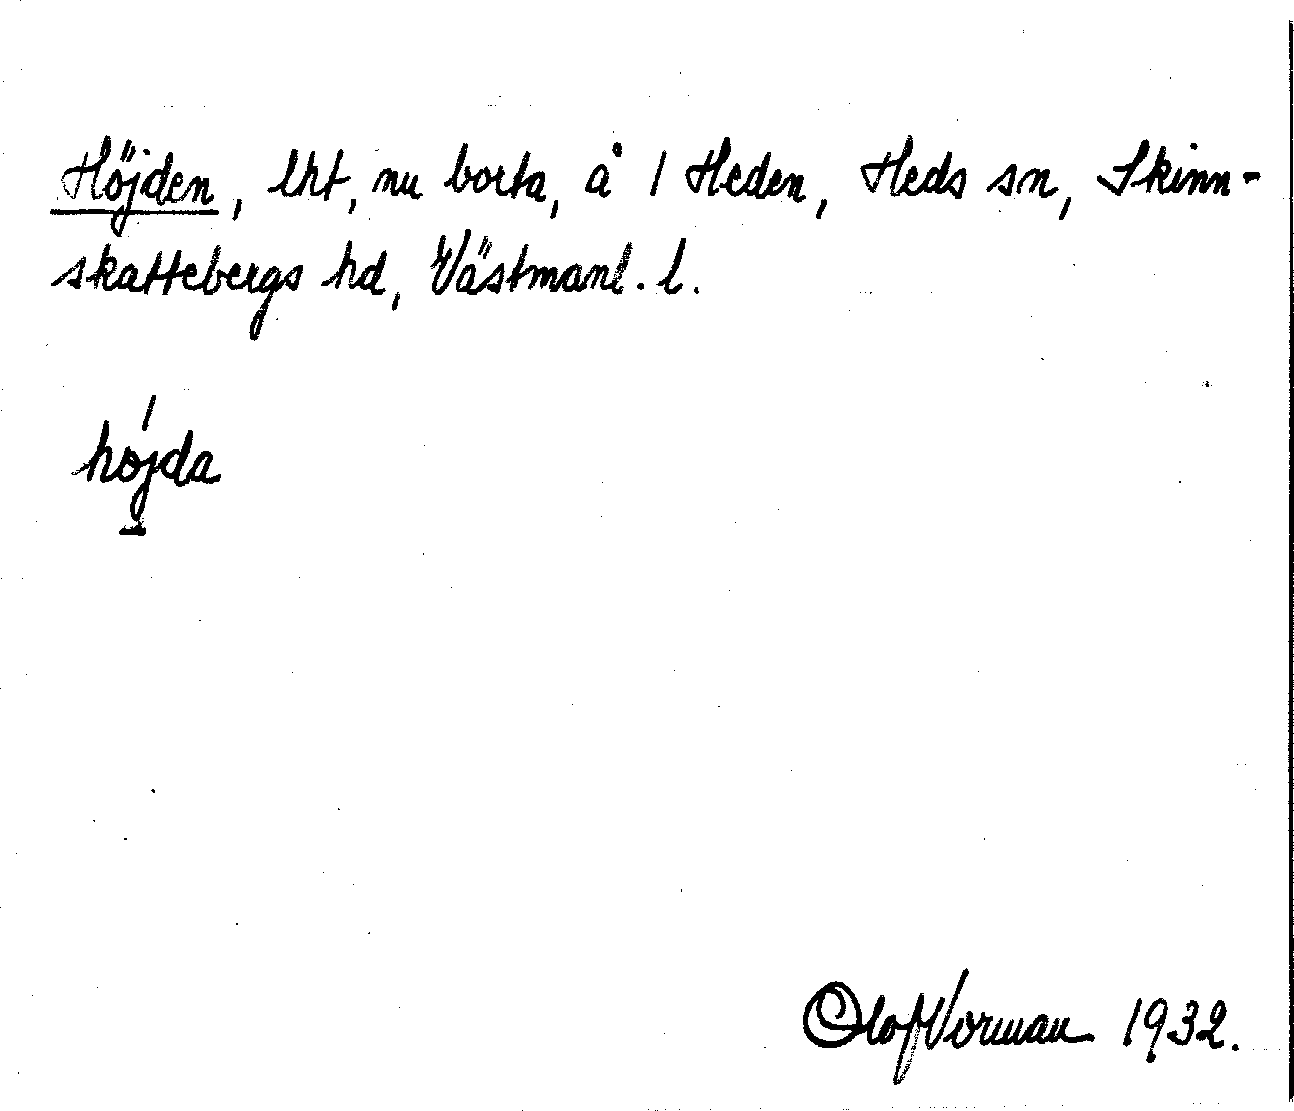 Höjden, lht, nu borta, å 1 Heden, Heds sn, Skinn-
skattebergs hd, Västmanl. l.
höjda
Olof Norman 1932.